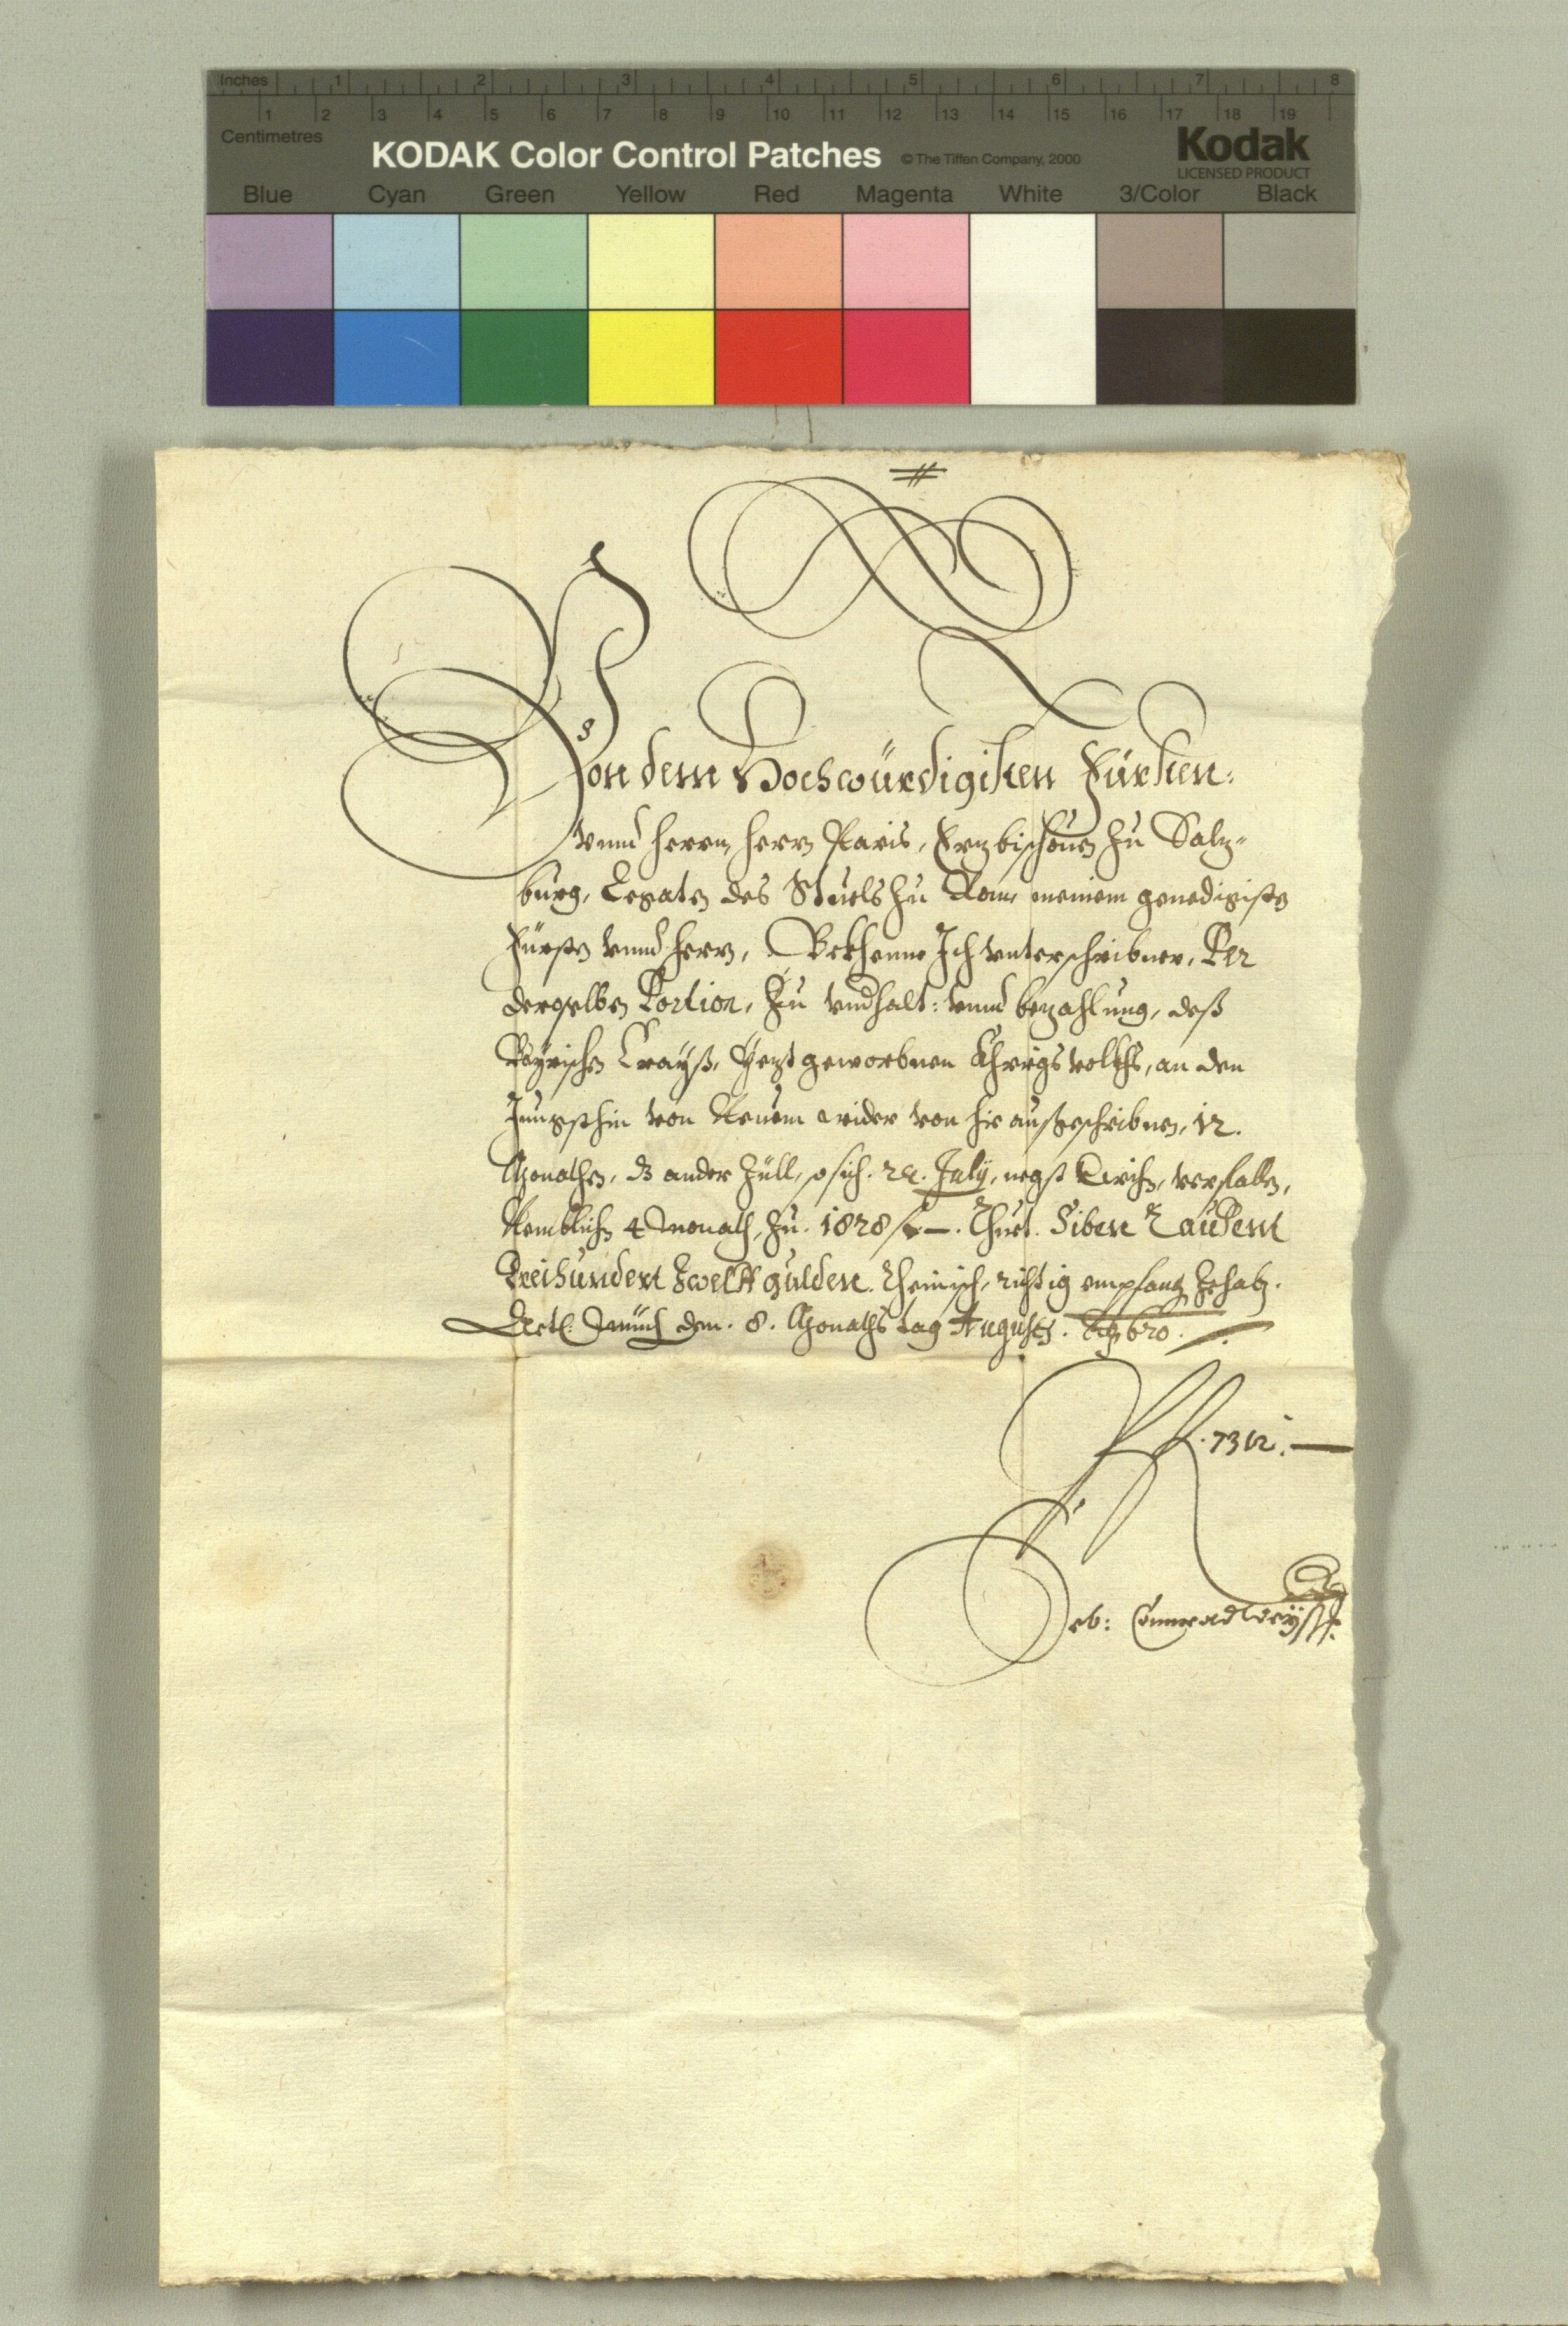 Inches 1 2 3 4 5 6 7 8
1 2 3 4 5 6 7 8 9 10 11 12 13 14 15 16 17 18 19
Centimetres
KODAK Color Control Patches © The Tiffen Company, 2000 Kodak
LICENSED PRODUCT
Blue Cyan Green Yellow Red Magenta White 3/Color Black
Von dem Hochwürdigisten Fürsten:
vnnd herrn, herrn Paris, Erzbischouen zu Salz-
burg, Legaten des Stuels zu Rom, meinem genedigisten
Fürsten vnnd herrn, Bekhenne Ich vnterschribner, Per
derselben Portion, Zu vndhalt: vnnd bezahlung, deß
Bayrischen Crayß, Yezt geworbnen Khriegsvolkhs, an den
Jungsthin von Neuem wider von hie außgeschribnen, 12.
Monathen, dz ander Zill, so sich July, negst verfallen,
Nemblichen 4 Monath, zu 1828 f —. Thuet. Siben Tausent
Dreihundert Zwelff gulden. Rheinisch, richtig empfang
Actl. Münch den. 8. Monaths tag Augusti. 620.
f. 7312. —
Conrad